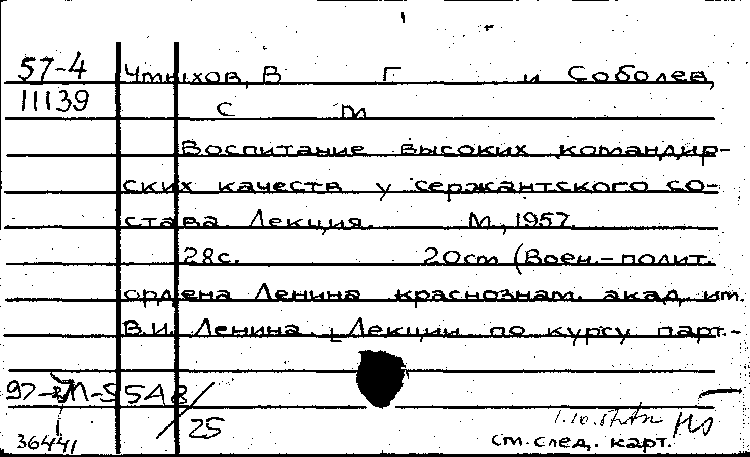 57-4 Чтыхов, В Г и Соболев,
11139 С т
Воспитание высоких командир-
ских качеств у сержантского со-
става. Лекция. М., 1957.
28с. 20cm (Воен.-полит.
ордена Ленина краснознам. акад. им.
В.И. Ленина. Лекции по курсу парт.-
548/25
36441
см. след. карт.